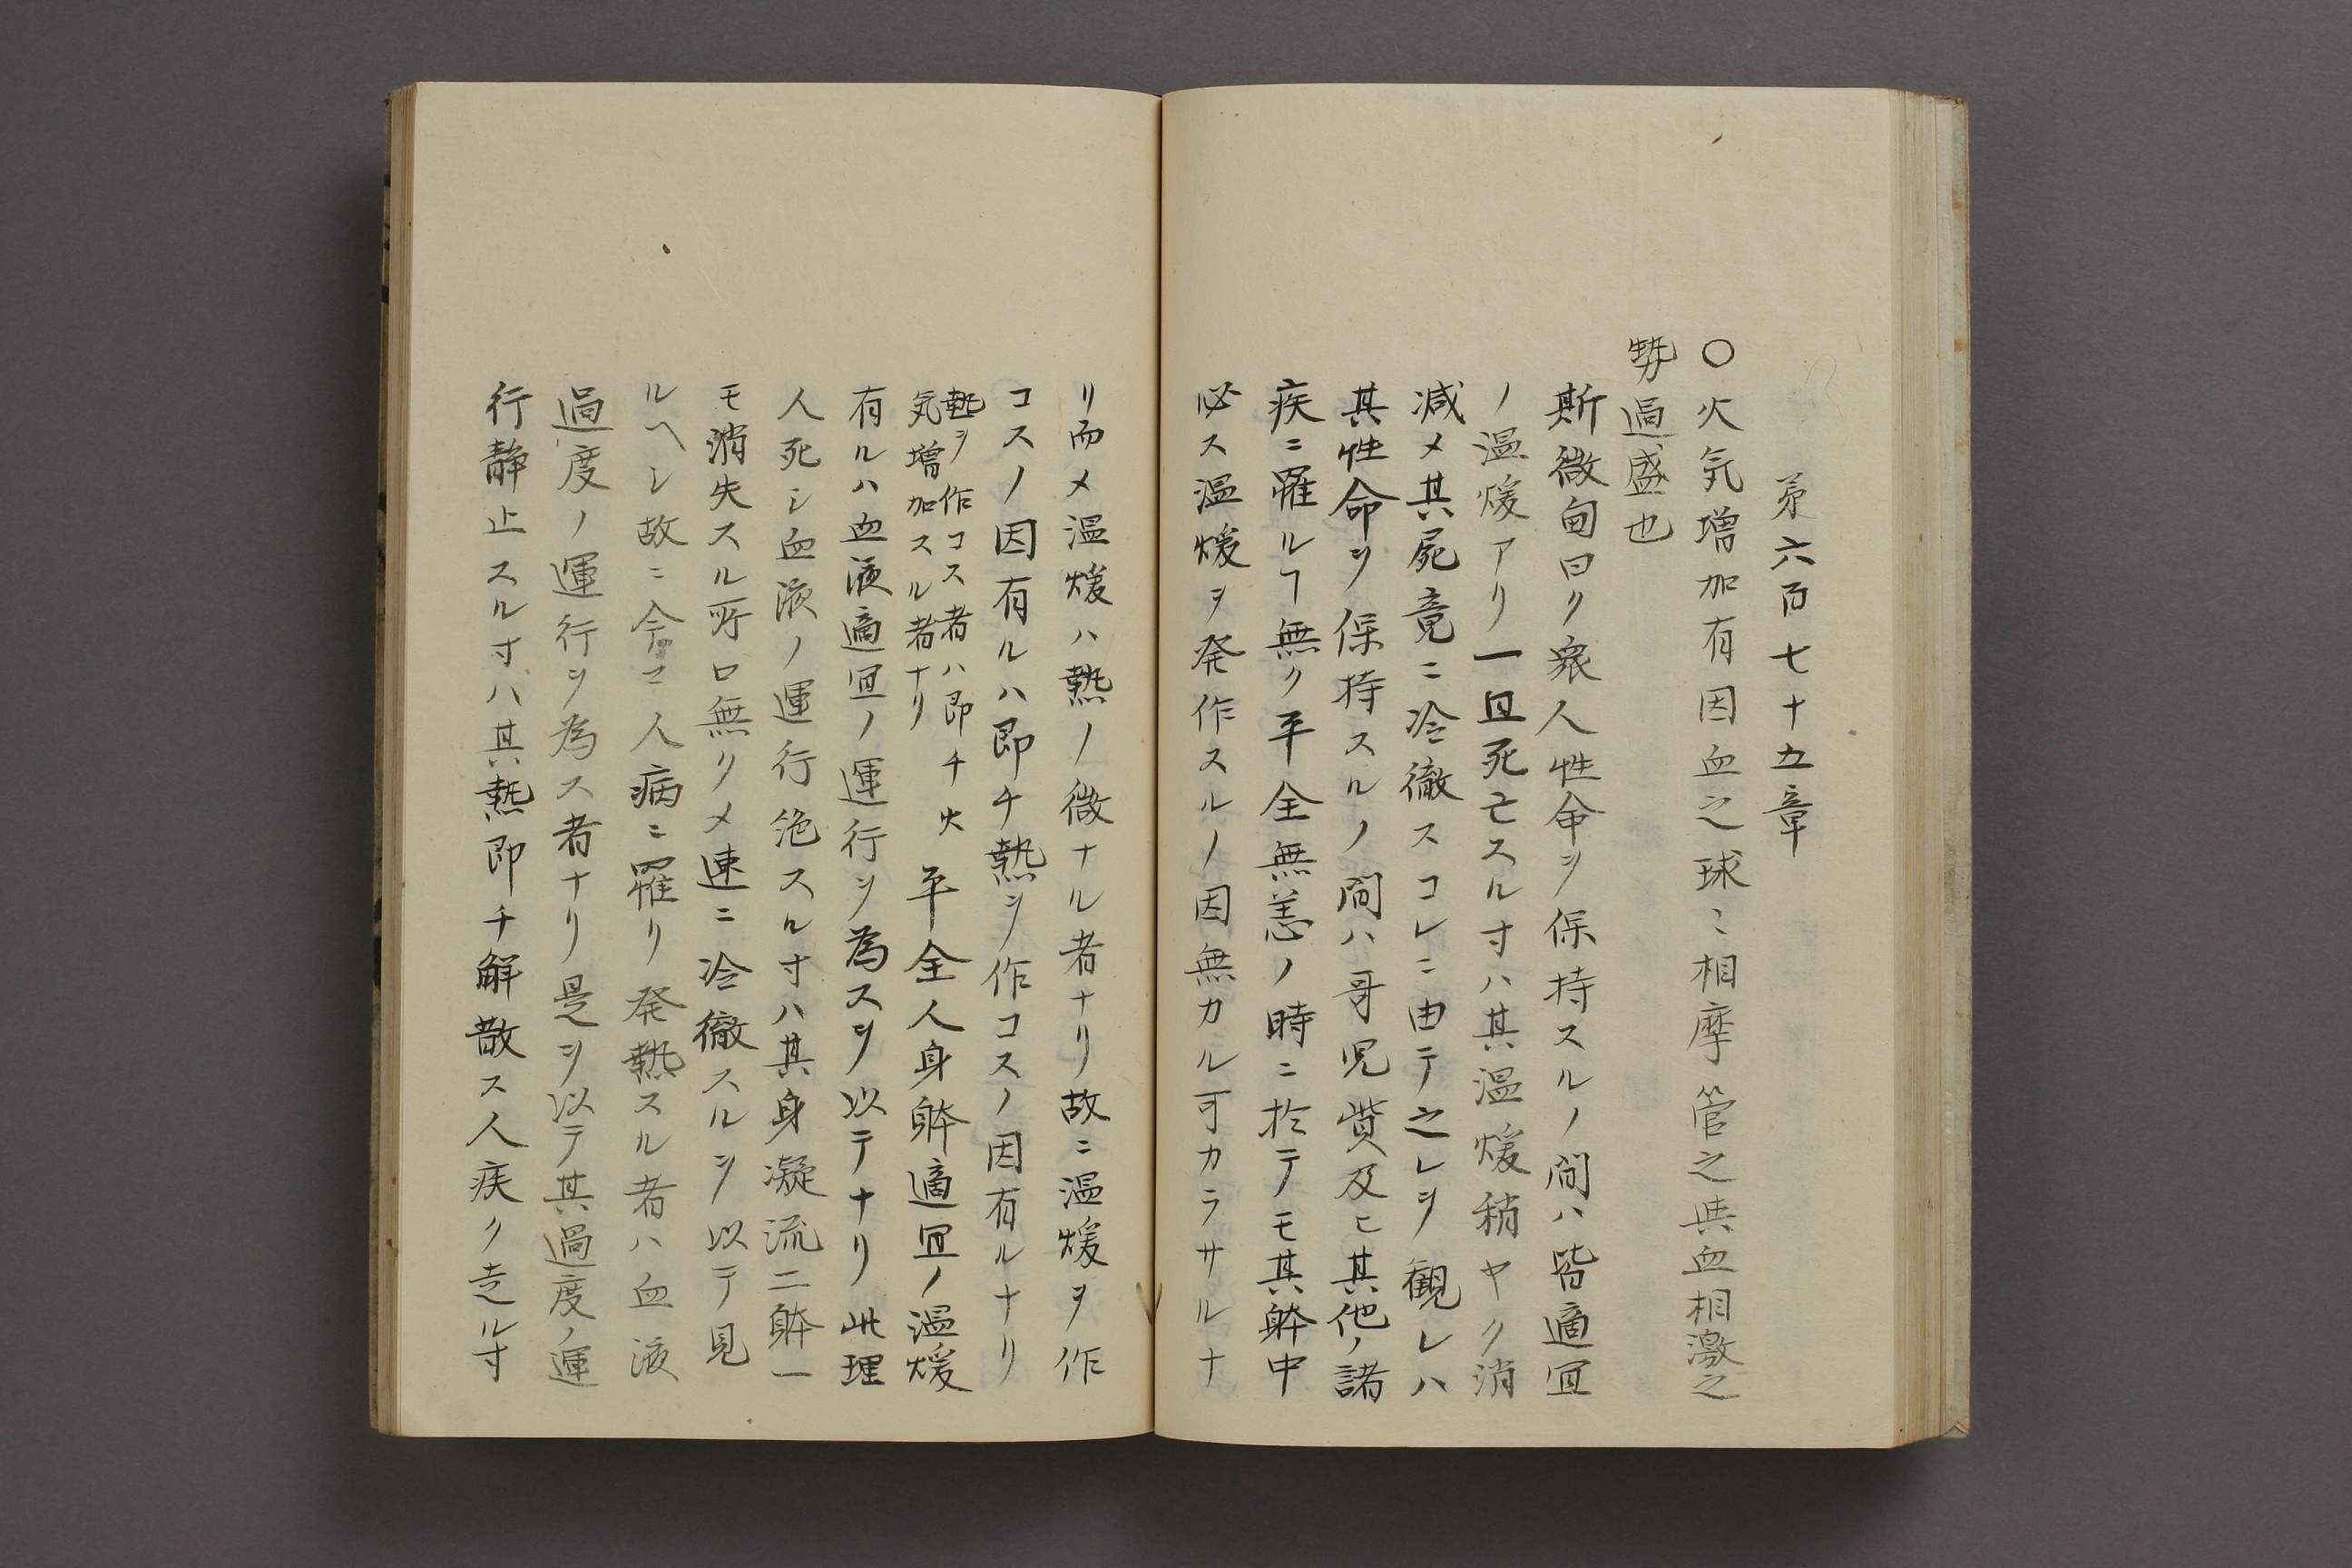 第六百七十五章
〇火気増加有因血之球〻相摩管之与血相激之
勢過盛也
斯微甸曰ク衆人性命ヲ保持スルノ間ハ皆適宜
ノ温煖アリ一旦死亡スル寸ハ其温煖稍ヤク消
減メ其屍竟ニ冷徹スコレニ由テ之レヲ観レハ
其性命ヲ保持スルノ間ハ哥児貲及ヒ其他ノ諸
疾ニ罹ルヿ無ク平全無恙ノ時ニ於テモ其躰中
必ス温煖ヲ発作スルノ因無カル可カラサルナ
リ而メ温煖ハ熱ノ微ナル者ナリ故ニ温煖ヲ作
コスノ因有ルハ即チ熱ヲ作コスノ因有ルナリ
熱ヲ作コス者ハ即チ火
気増加スル者ナリ
平全人身躰適宜ノ温煖
有ルハ血液適宜ノ運行ヲ為スヲ以テナリ此理
人死シ血液ノ運行絶スル寸ハ其身凝流ニ躰一
モ消失スル所ロ無クメ速ニ冷徹スルヲ以テ見
ルヘシ故ニ今マ人病ニ罹リ発熱スル者ハ血液
過度ノ運行ヲ為ス者ナリ是ヲ以テ其過度ノ運
行静止スル寸ハ其熱即チ解散ス人疾ク走ル寸